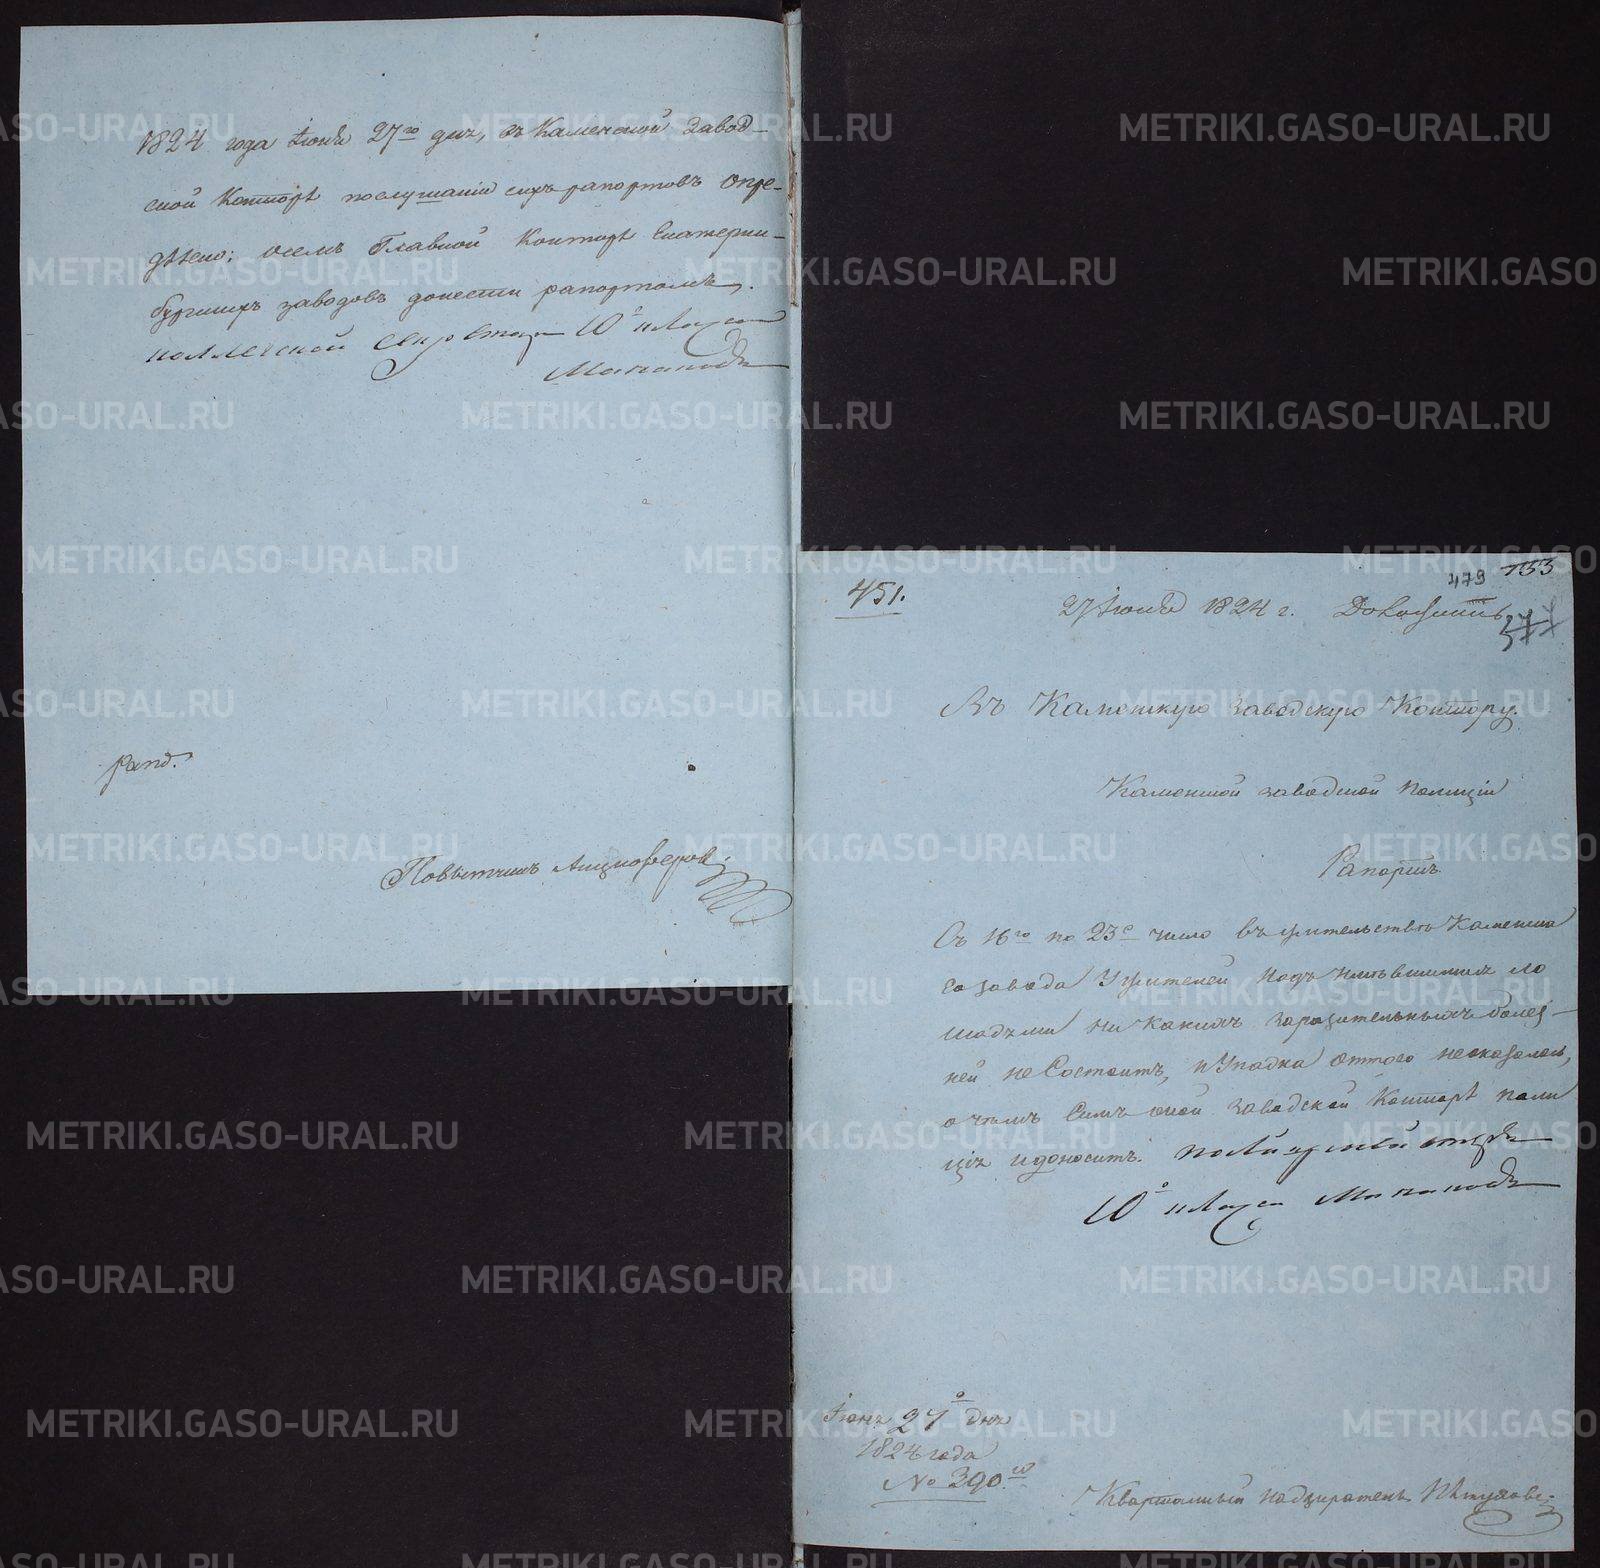 1824 года Іюня 27го дня, въ Каменской завод-
ской Конторѣ по слушаніи сихъ рапортовъ опре-
дѣлено: осемъ Главной Конторѣ Екатерин-
бургскихъ заводовъ донести рапортомъ.
10о класса
рапд.
Повытчикъ
451.
479 153
27 Іюня 1824 г. Доложить
377
Въ Каменскую заводскую Контору.
Каменской заводской Полиціи
Рапортъ
Съ 16го по 23е число въ жительствѣ Каменска
го завода У жителей надъ имѣвшимися ло
шадьми ни какихъ заразительныхъ болез-
ней не Состоитъ, и Упадка оттого неоказалось,
о чемъ Симъ оной заводской Конторѣ поли
ція и доноситъ.
10о класса
Іюня 27о дня
1824 года
№ 390.
Квартальный надзиратель
METRIKI.GASO-URAL.RU